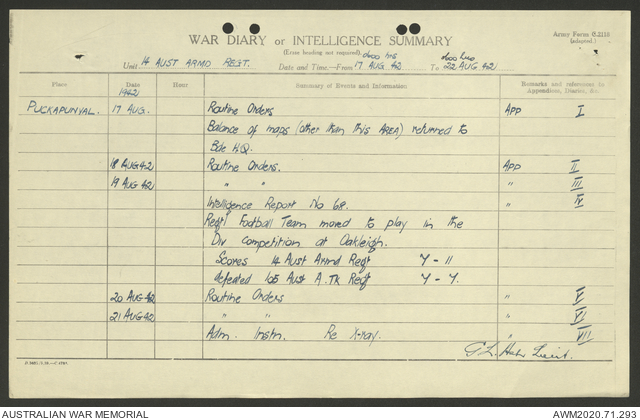 WAR DIARY or INTELLIGENCE SUMMARY
Army Form C.2118
(adapted.)
(Erase heading not required).
Unit 14 AUST ARMD REGT.
Date and Time—From 0600 hrs 17 AUG 42 To 0600 hrs 22 AUG 42
Place Date Hour Summary of Events and Information Remarks and references to Appendices, Diaries, &c.
1942
PUCKAPUNYAL. 17 AUG. Routine Orders APP I
Balance of maps (other than this AREA) returned to
Bde HQ.
18 AUG 42 Routine Orders. APP II
19 AUG 42 " " " III
Intelligence Report No 68. " IV
Reg'l Football Team moved to play in the
Div competition at Oakleigh.
Scores 14 Aust Armd Regt 7 - 11
defeated 105 Aust A.TK Regt 7 - 7.
20 AUG 42 Routine Orders " V
21 AUG 42 " " " VI
Adm. Instn. Re X-ray. " VII
G.L. Lieut.
AUSTRALIAN WAR MEMORIAL
AWM2020.71.293